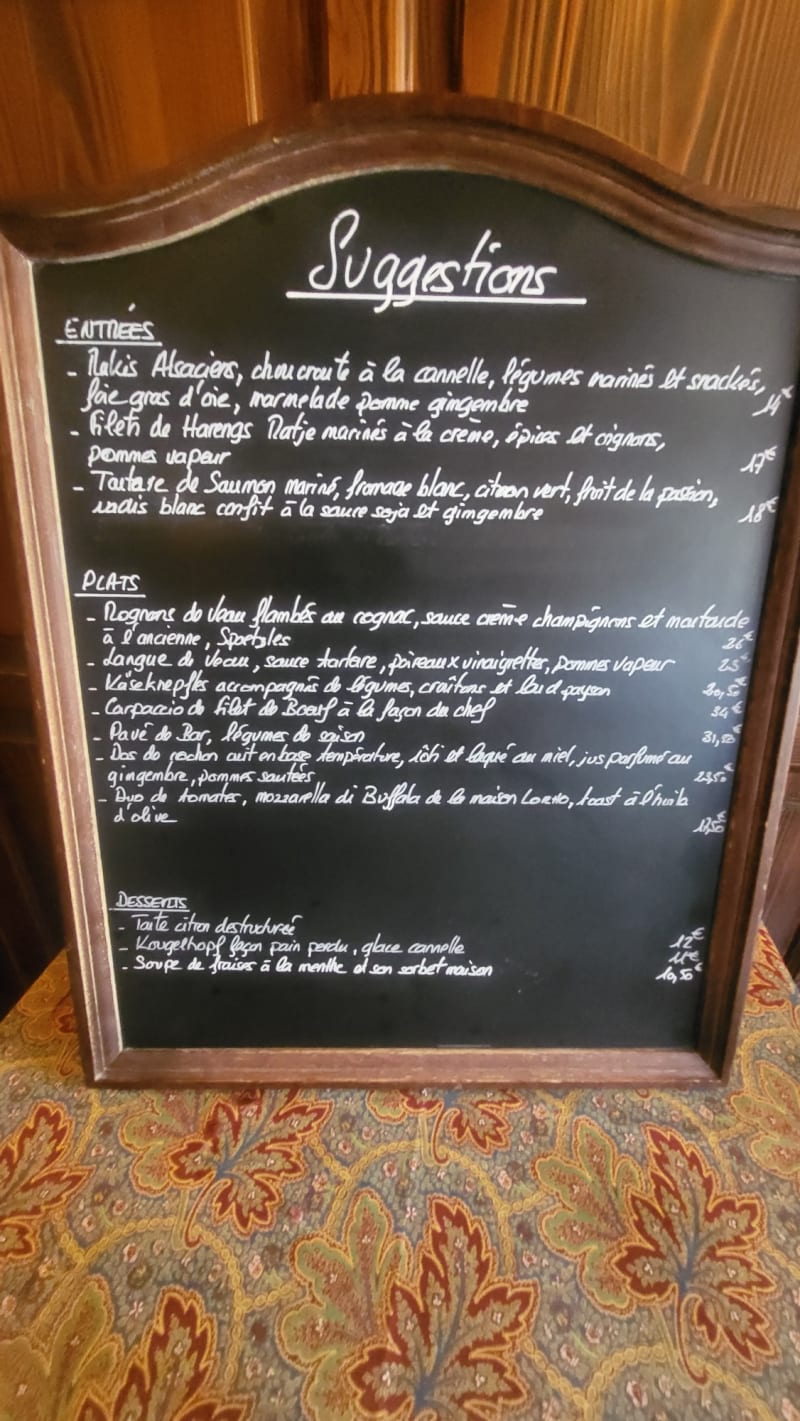 Suggestions
ENTRÉES
- Makis Alsaciens, choucroute à la cannelle, légumes marinés et snackés,
foie gras d'oie, marmelade pomme gingembre 14€
- Filets de Harengs Matje marinés à la crème, épices et oignons,
pommes vapeur 17€
- Tartare de Saumon mariné, fromage blanc, citron vert, fruit de la passion,
radis blanc confit à la sauce soja et gingembre 18€
PLATS
- Rognons de Veau flambés au cognac, sauce crème champignons et moutarde
à l'ancienne, Spaetzles 26€
- Langue de Veau, sauce tartare, poireaux vinaigrettes, pommes vapeur €
- Käseknepfles accompagnés de légumes, croûtons et lard paysan 20,50€
- Carpaccio de filet de Boeuf à la façon du chef 34€
- Pavé de Bar, légumes de saison 31,50€
- Dos de cochon cuit en basse température, rôti et laqué au miel, jus parfumé au
gingembre, pommes sautées 23,50€
- Duo de tomates, mozzarella di Buffala de la maison, toast à l'huile
d'olive €
DESSERTS
- Tarte citron destructurée 12€
- Kougelhopf façon pain perdu, glace cannelle 11€
- Soupe de fraises à la menthe et son sorbet maison 10,50€